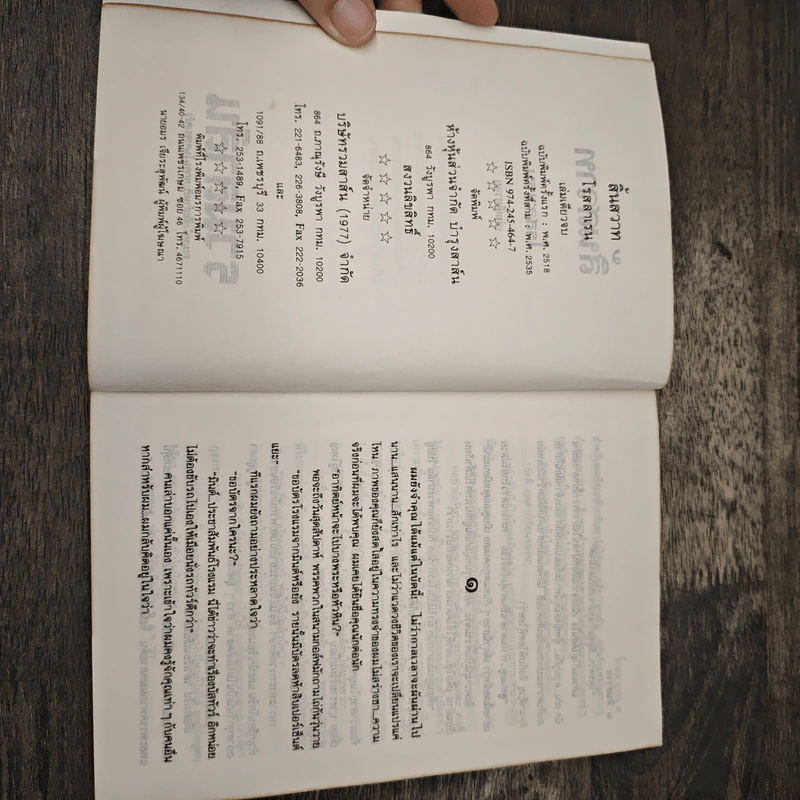 สิ้นสวาท
โรสลาเรน
เล่มเดียวจบ
ฉบับพิมพ์ครั้งแรก : พ.ศ. 2518
ฉบับพิมพ์ครั้งที่สาม : พ.ศ. 2535
ISBN 974-245-464-7
☆ ☆ ☆ ☆ ☆
จัดพิมพ์
ห้างหุ้นส่วนจำกัด บำรุงสาส์น
864 วังบูรพา กทม. 10200
สงวนลิขสิทธิ์
☆ ☆ ☆ ☆ ☆
จัดจำหน่าย
บริษัทรวมสาส์น (1977) จำกัด
864 ถ.ภาณุรังษี วังบูรพา กทม. 10200
โทร. 221-6483, 226-3808, Fax 222-2036
และ
1091/88 ถ.เพชรบุรี 33 กทม. 10400
โทร. 253-1489, Fax 253-7915
☆ ☆ ☆ ☆ ☆
พิมพ์ที่โรงพิมพ์อมรการพิมพ์
134/40-42 ถนนเพชรเกษม ซอย 46 โทร. 4671110
นายอมร เจียระสุพัฒน์ ผู้พิมพ์ผู้โฆษณา
๑
ผมยังจำคุณได้แม้แต่ในบัดนี้ ไม่ว่ากาลเวลาจะผันผ่านไป
นาน..แสนนาน...สักเท่าไร และไม่ว่าแวดวงชีวิตของเราจะเปลี่ยนแปรแค่
ไหน ภาพของคุณก็ยังสดใสอยู่ในความทรงจำของผมไม่สร่างซา...ความ
จริงก่อนที่ผมจะได้พบคุณ ผมเคยได้ยินชื่อคุณนักต่อนัก
"อาทิตย์หน้าจะไปบางพระหรือหัวหิน?"
พอจะถึงวันสุดสัปดาห์ พรรคพวกในสนามกอล์ฟมักถามไถ่กันวุ่นวาย
"ขอบัตรโรงแรมจากมินต์หรือยัง รายนั้นมีบัตรลดห้าสิบเปอร์เซ็นต์
แยะ"
ทีแรกผมยังถามอย่างประหลาดใจว่า
"ขอบัตรจากใครนะ?"
"มินต์..ประชาสัมพันธ์โรงแรม นี่ได้ข่าวว่าจะทำเรื่องบัสทัวร์ อีกหน่อย
ไม่ต้องขับรถไปเองให้เมื่อยนั่งรถทัวร์ดีกว่า"
คนเล่าบอกแค่นั้นเอง เพราะเข้าใจว่าผมคงรู้จักคุณเท่า ๆ กับคนอื่น
หากสำหรับผม...ผมกลับคิดอยู่ในใจว่า